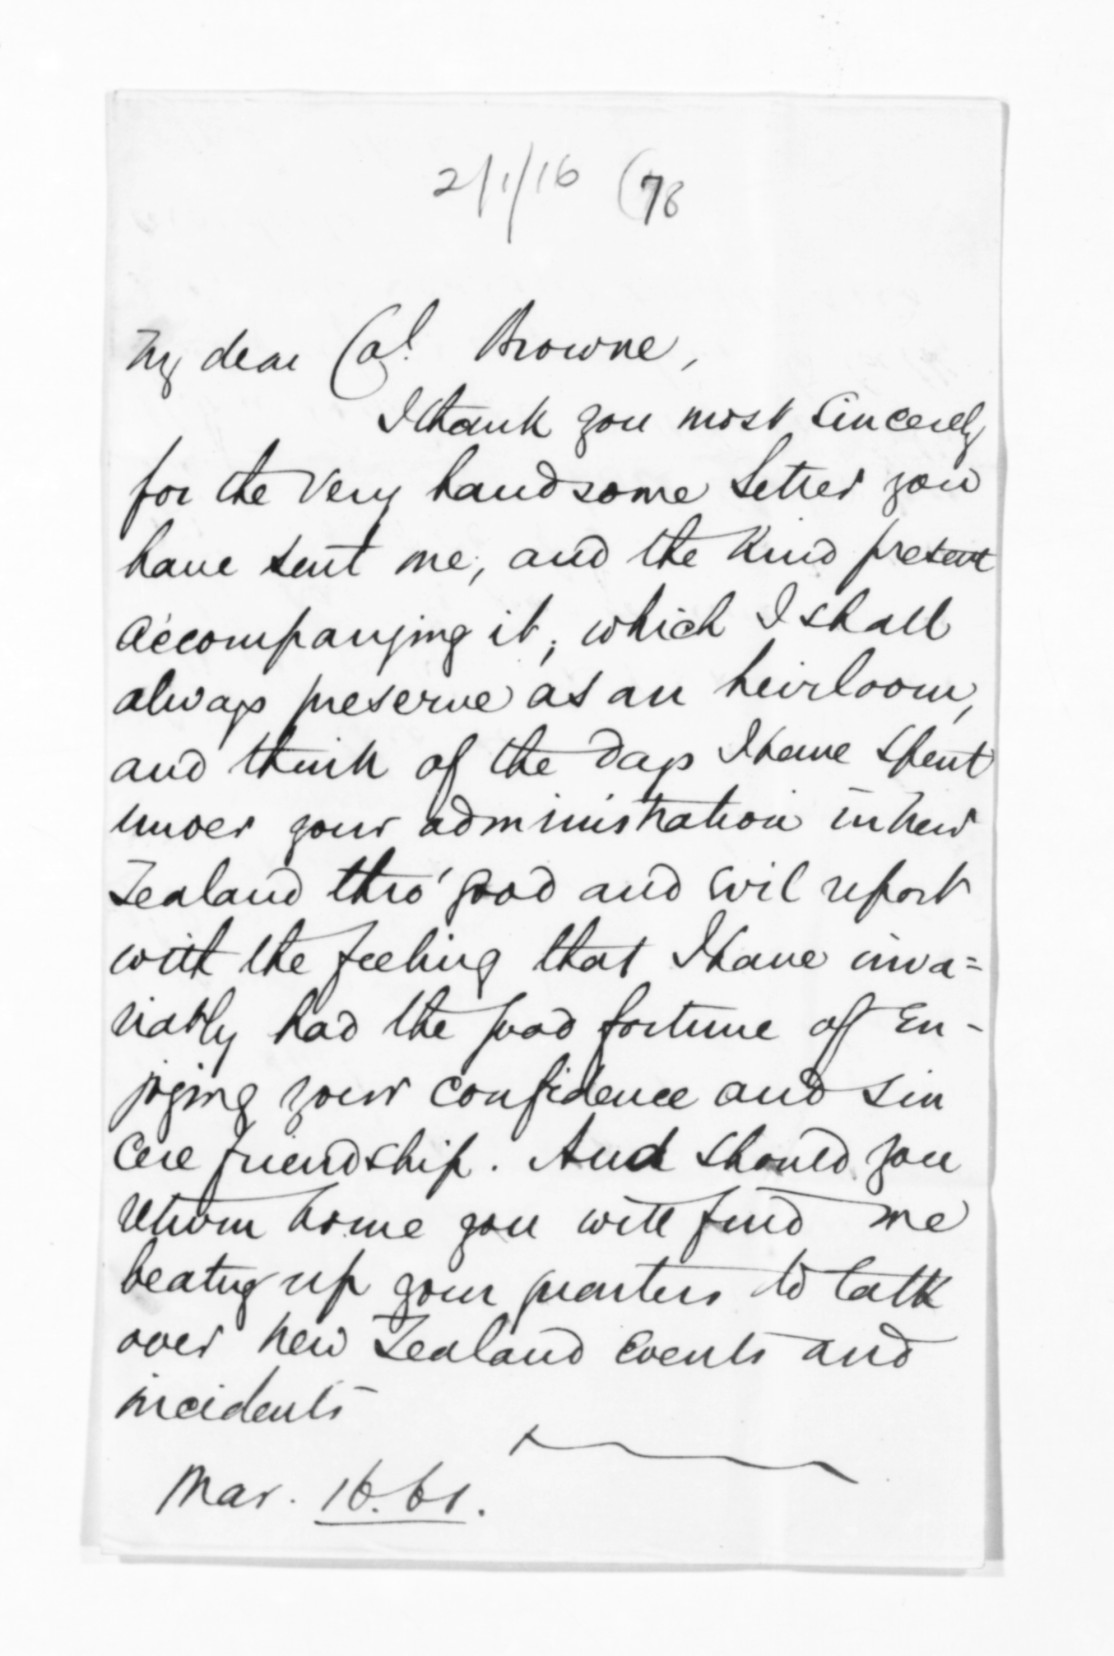 2/1/16 (78
My dear Col. Browne,
I thank you most sincerely
for the very handsome letter you
have sent me, and the kind present
accompanying it, which I shall
always preserve as an heirloom,
and think of the days I have spent
under your administration in New
Zealand thro' good and evil report
with the feeling that I have inva=
riably had the good fortune of en-
joying your confidence and sin
cere friendship. And should you
return home you will find me
beatng up your quarters to talk
over New Zealand events and
incidents
Mar. 16. 61.